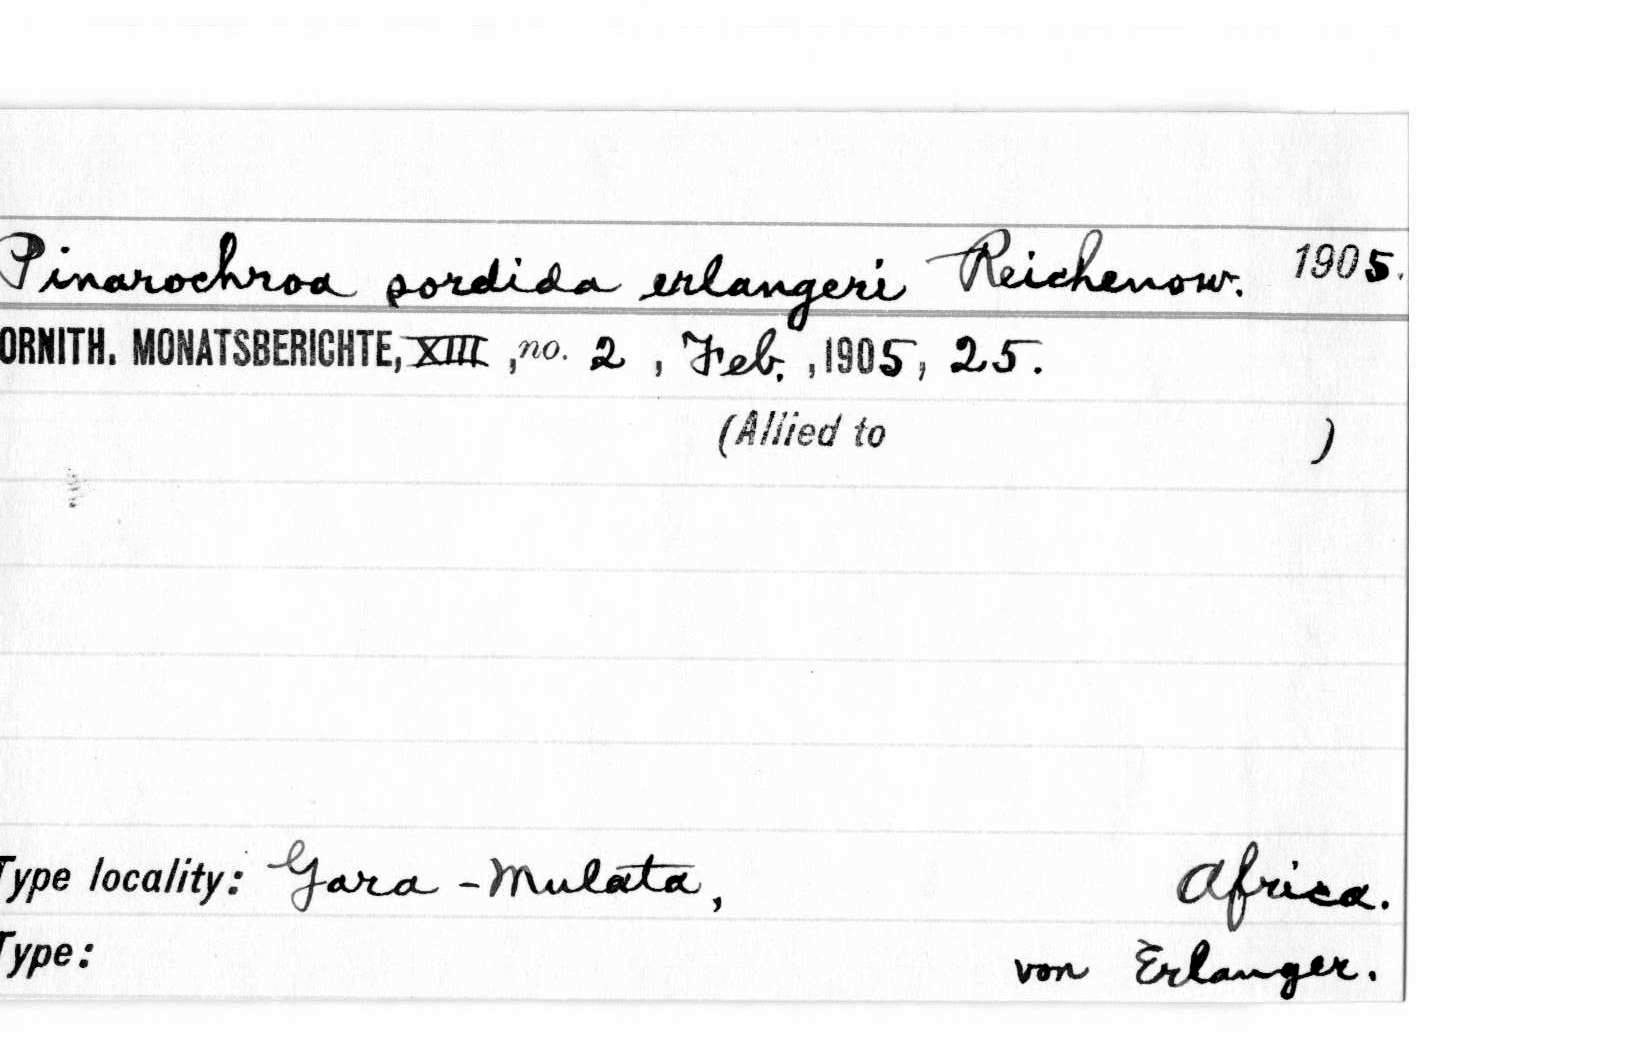 Pinarochroa sordida erlangeri Reichenow. 1905.
ORNITH. MONATSBERICHTE, XIII, no. 2, Feb., 1905, 25.
(Allied to )
Type locality: Gara-Mulata, Africa.
Type: von Erlanger.